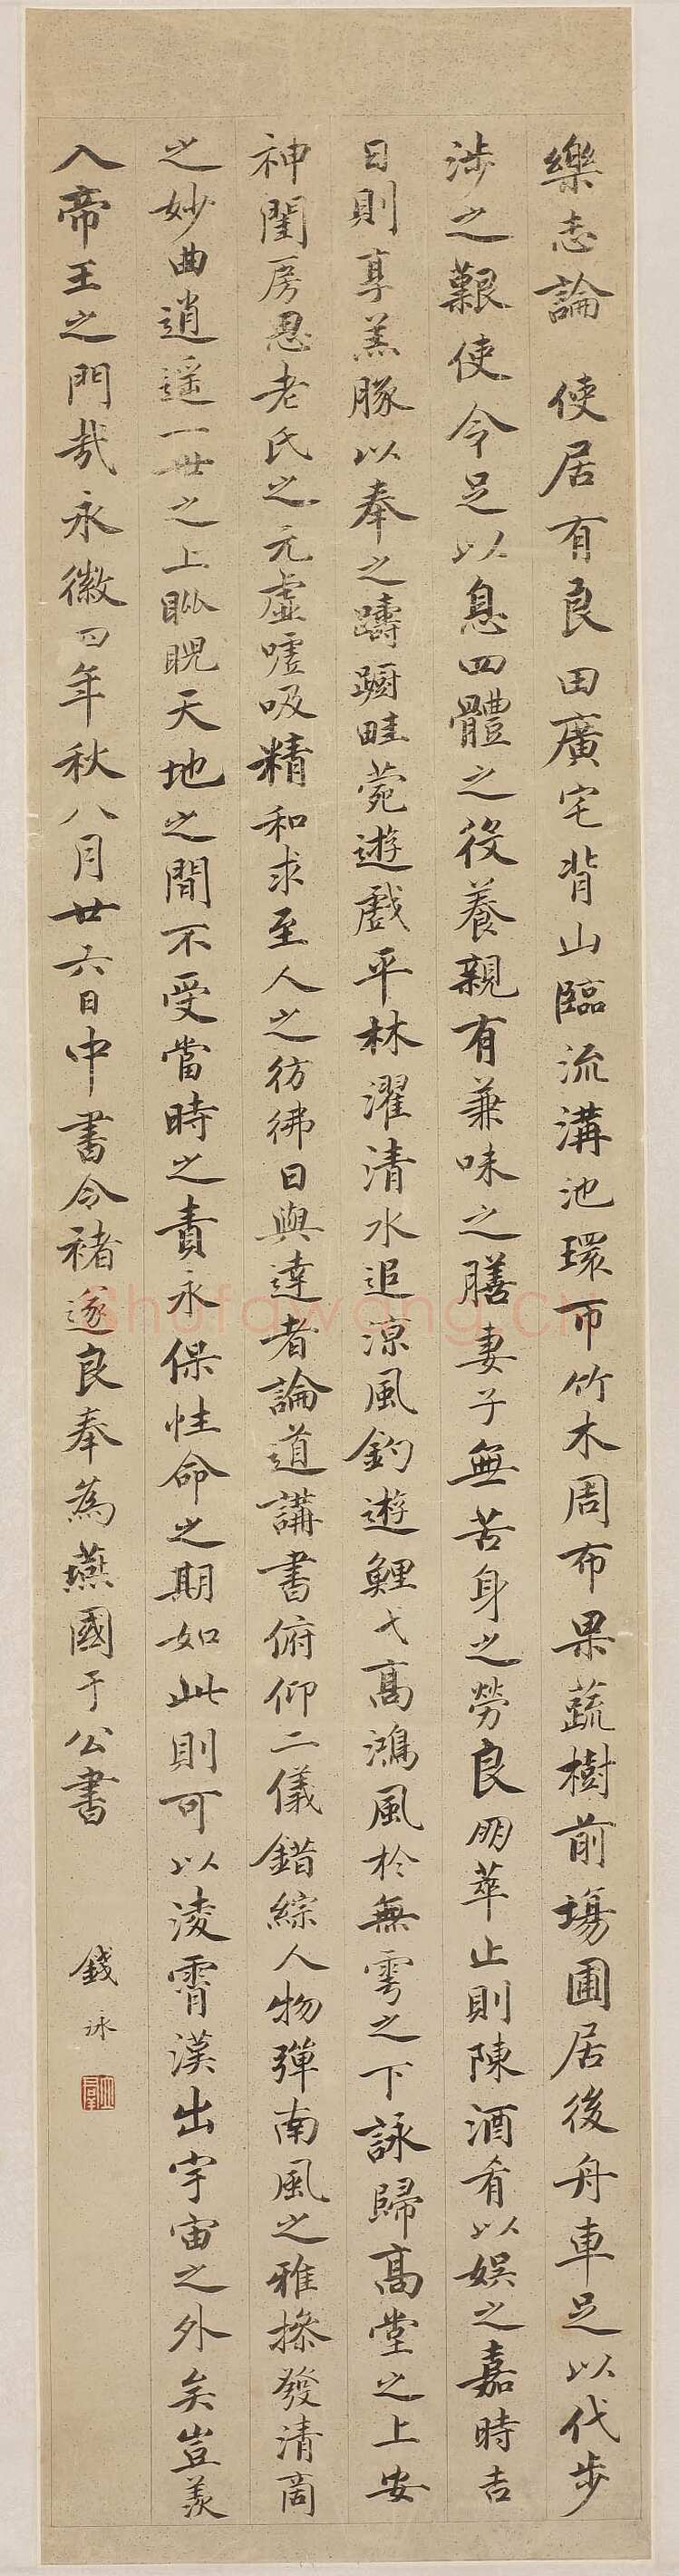 樂志論　使居有良田廣宅背山臨流溝池環帀竹木周布果蔬樹前場圃居後舟車足以代步
涉之艱使令足以息四體之役養親有兼味之膳妻子無苦身之勞良朋萃止則陳酒肴以娛之嘉時吉
日則享羔豚以奉之躊躕畦菀遊戲平林濯清水追涼風釣遊鯉弋高鴻風於無雩之下詠歸高堂之上安
神閨房思老氏之元虛噓吸精和求至人之彷彿日與達者論道講書俯仰二儀錯綜人物彈南風之雅操發清商
之妙曲逍遙一世之上睥睨天地之間不受當時之責永保性命之期如此則可以淩霄漢出宇宙之外矣豈羨
入帝王之門哉永徽四年秋八月廿六日中書令褚遂良奉為燕國于公書
錢泳
shufawang.cn